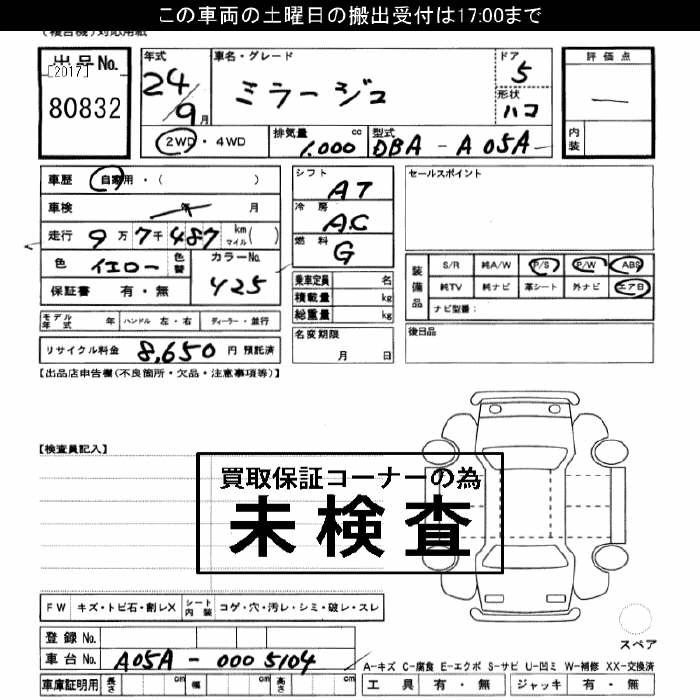 この車両の土曜日の搬出受付は17:00まで
(複合機)対応用紙
出品No.
[2017]
80832
年式
24
9月
車名・グレード
ミラージュ
ドア
5
形状
ハコ
評価点
—
内装
2WD・4WD
排気量 cc
1,000
型式
DBA - A05A
車歴 自家用・( )
車検 年 月
走行 9万7千487 km マイル( )
色 イエロー 色替
カラーNo.
425
保証書 有・無
モデル年式 年 ハンドル 左・右 ディーラー・並行
リサイクル料金 8,650 円 預託済
シフト
AT
冷房
AC
燃料
G
乗車定員 名
積載量 kg
総重量 kg
名変期限
月 日
セールスポイント
装備品
S/R 純A/W P/S P/W ABS
純TV 純ナビ 革シート 外ナビ エアB
ナビ型番:
後日品
【出品店申告欄(不良箇所・欠品・注意事項等)】
【検査員記入】
買取保証コーナーの為
未検査
FW キズ・トビ石・割レX シート内装 コゲ・穴・汚レ・シミ・破レ・スレ
スペア
登録No.
車台No. A05A - 0005104
A-キズ C-腐食 E-エクボ S-サビ U-凹ミ W-補修 XX-交換済
車庫証明用 長さ cm 幅 cm 高さ cm
工具 有・無 ジャッキ 有・無